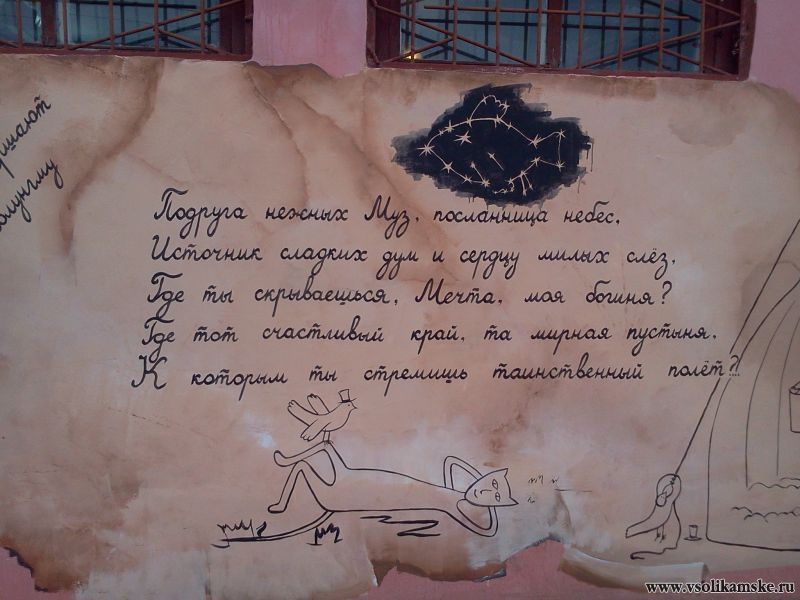 Подруга нежных Муз, посланница небес,
Источник сладких дум и сердцу милых слёз,
Где ты скрываешься, Мечта, моя богиня?
Где тот счастливый край, та мирная пустыня,
К которым ты стремишь таинственный полёт?
www.vsolikamske.ru